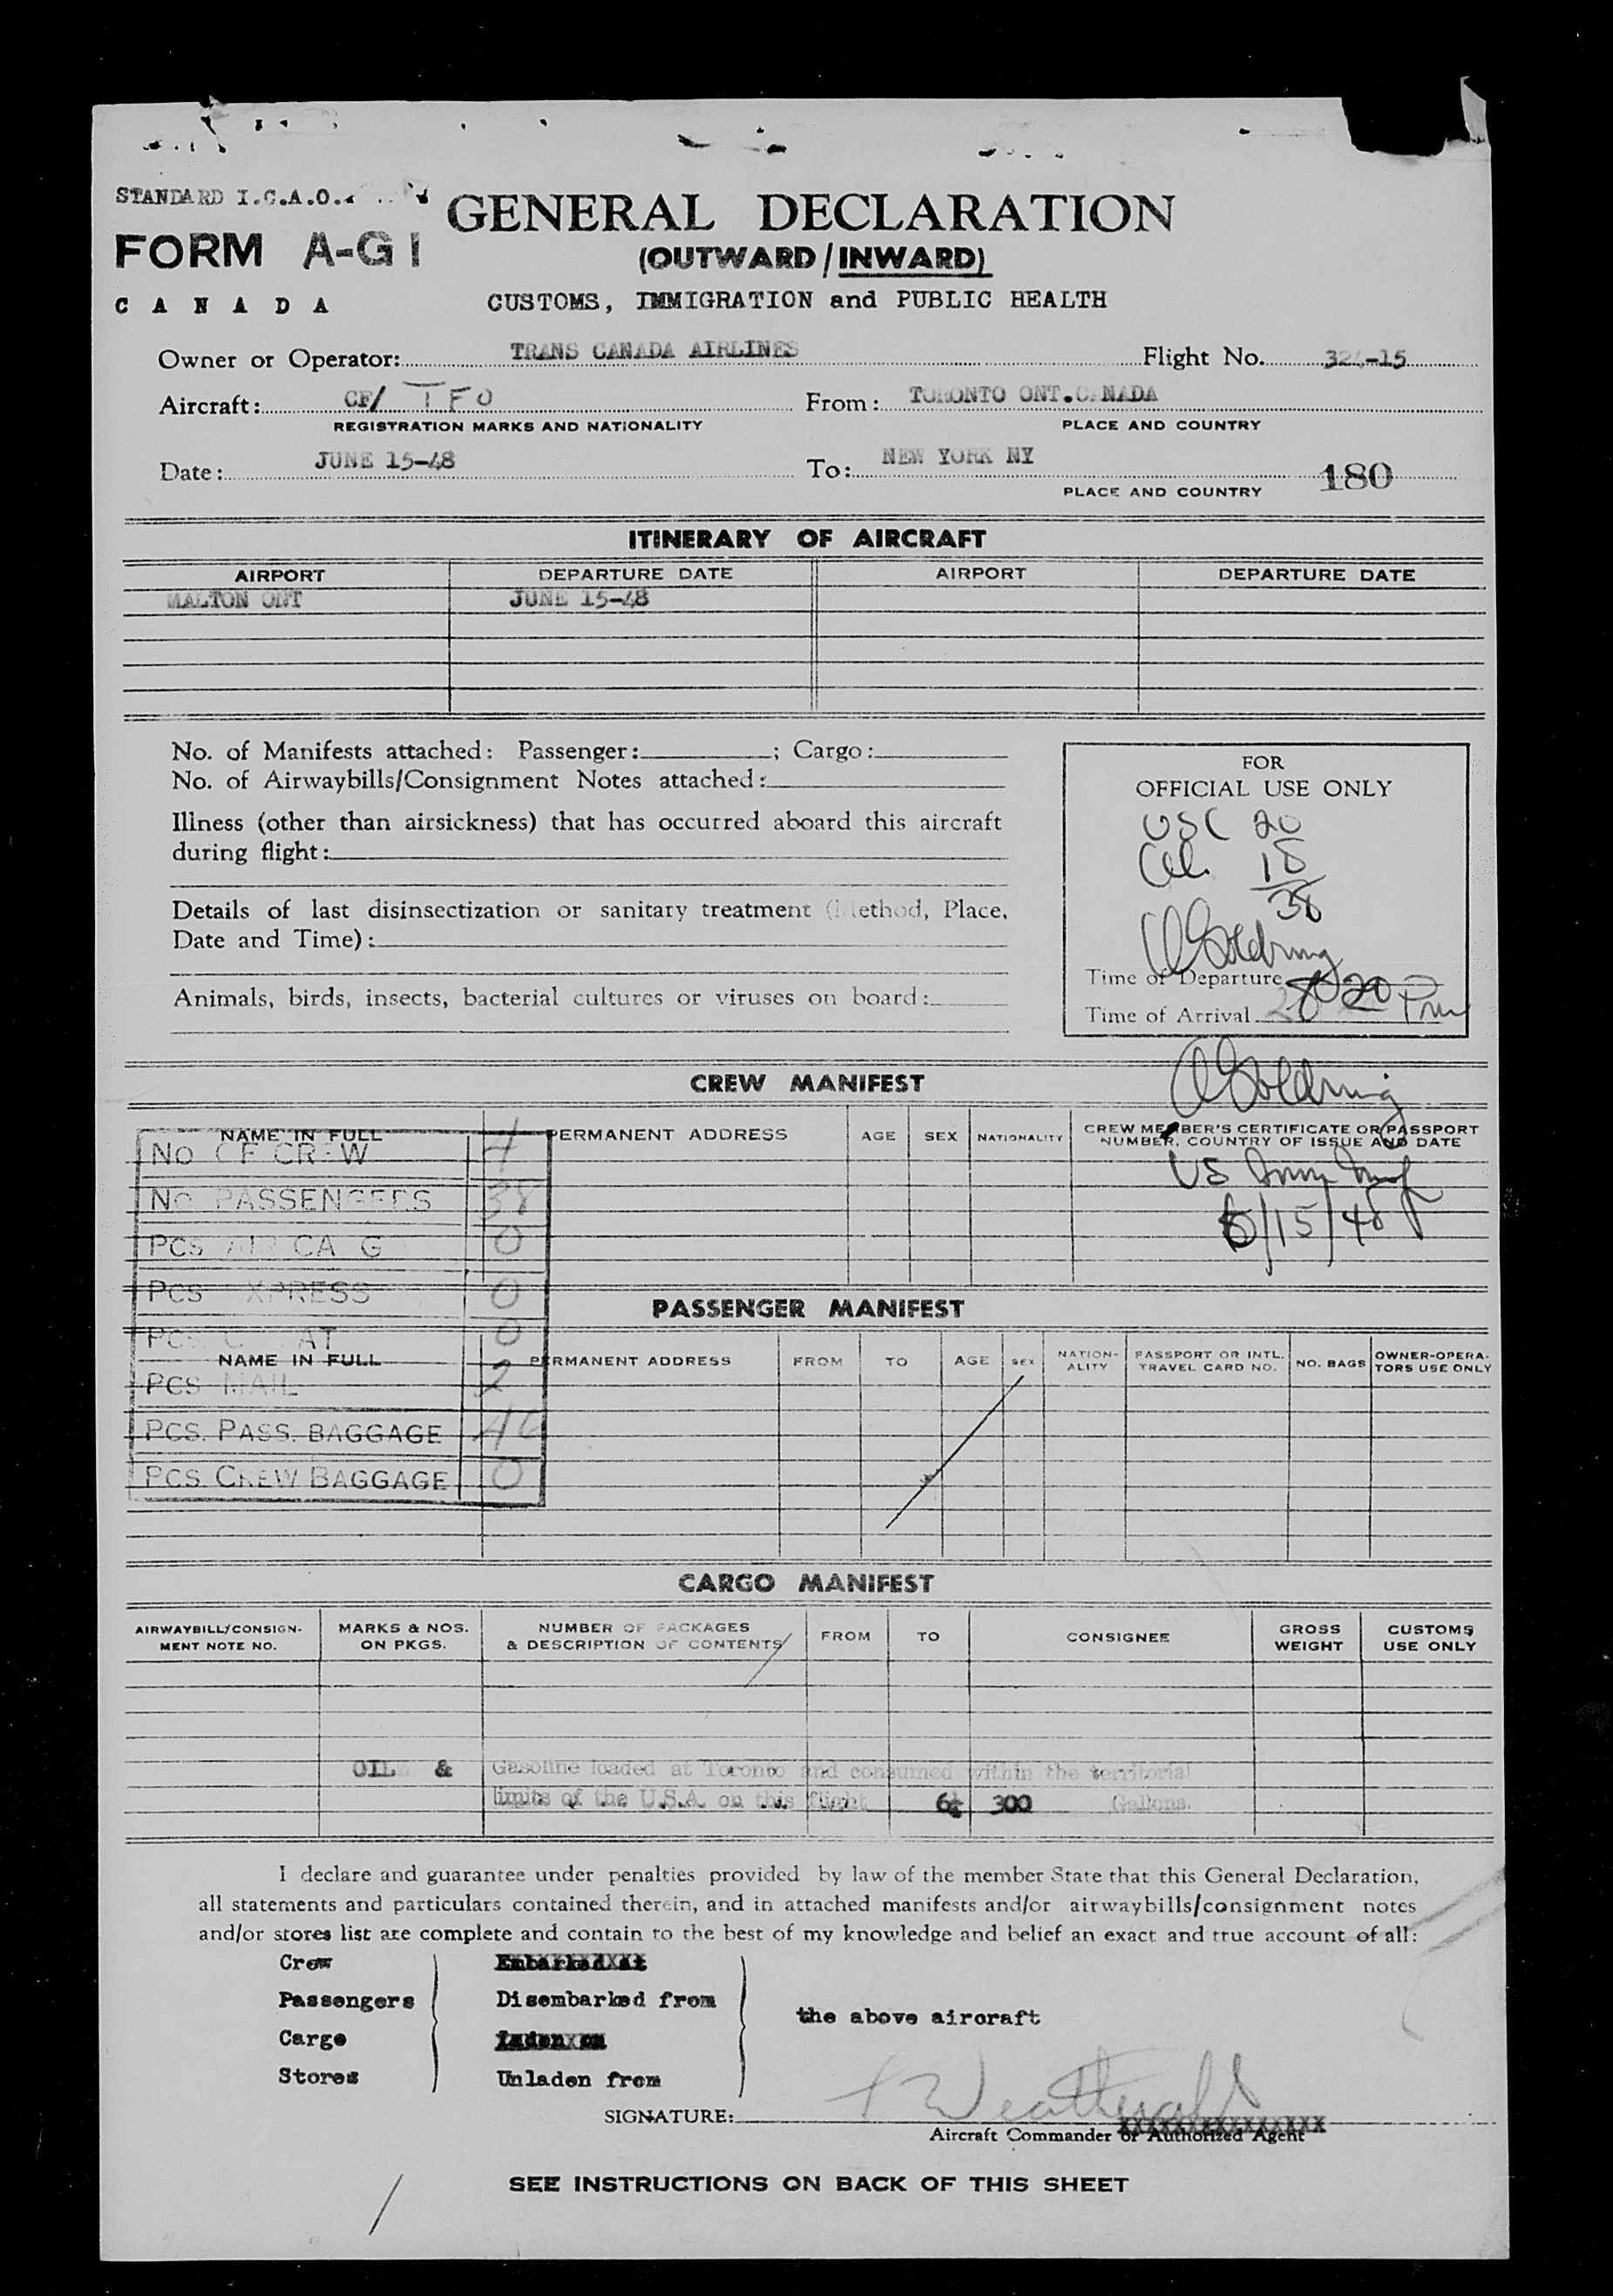 STANDARD I.C.A.O.
GENERAL DECLARATION
FORM A-G1
(OUTWARD/INWARD)
CANADA
CUSTOMS, IMMIGRATION and PUBLIC HEALTH
Owner or Operator: TRANS CANADA AIRLINES Flight No. 324-15
Aircraft: CF/ TFO From: TORONTO ONT.CANADA
REGISTRATION MARKS AND NATIONALITY PLACE AND COUNTRY
Date: JUNE 15-48 To: NEW YORK NY
PLACE AND COUNTRY 180
ITINERARY OF AIRCRAFT
AIRPORT DEPARTURE DATE AIRPORT DEPARTURE DATE
MALTON ONT JUNE 15-48
No. of Manifests attached: Passenger: ; Cargo:
No. of Airwaybills/Consignment Notes attached:
Illness (other than airsickness) that has occurred aboard this aircraft
during flight:
Details of last disinsectization or sanitary treatment (Method, Place,
Date and Time):
Animals, birds, insects, bacterial cultures or viruses on board:
FOR
OFFICIAL USE ONLY
USC 20
18
38
Goldring
Time of Departure
Time of Arrival 8 20 Pm
CREW MANIFEST
Goldring
NAME IN FULL PERMANENT ADDRESS AGE SEX NATIONALITY CREW MEMBER'S CERTIFICATE OR PASSPORT
NUMBER, COUNTRY OF ISSUE AND DATE
US
6/15/48
No OF CREW 4
No PASSENGERS 38
PCS AIR CA G 0
PCS XPRESS 0
0
PCS MAIL 2
PCS. PASS. BAGGAGE
PCS. CREW BAGGAGE 0
PASSENGER MANIFEST
NAME IN FULL PERMANENT ADDRESS FROM TO AGE SEX NATION-ALITY PASSPORT OR INTL. TRAVEL CARD NO. NO. BAGS OWNER-OPERA-TORS USE ONLY
CARGO MANIFEST
AIRWAYBILL/CONSIGN-MENT NOTE NO. MARKS & NOS. ON PKGS. NUMBER OF PACKAGES & DESCRIPTION OF CONTENTS FROM TO CONSIGNEE GROSS WEIGHT CUSTOMS USE ONLY
OIL & Gasoline loaded at Toronto and consumed within the territorial
limits of the U.S.A. on this flight 300 Gallons.
I declare and guarantee under penalties provided by law of the member State that this General Declaration,
all statements and particulars contained therein, and in attached manifests and/or airwaybills/consignment notes
and/or stores list are complete and contain to the best of my knowledge and belief an exact and true account of all:
Crew Embarked at
Passengers Disembarked from
the above aircraft
Cargo Laden on
Stores Unladen from
SIGNATURE:
Aircraft Commander or Authorized Agent
SEE INSTRUCTIONS ON BACK OF THIS SHEET